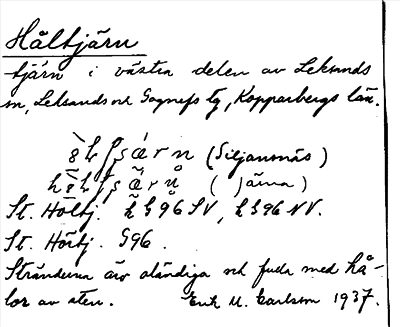 Håltjärn
tjärn i västra delen av Leksands
sn, Leksands och Gagnefs tg, Kopparbergs län.
(Siljansnäs)
(Järna)
St. Höltj. h G 96 SV, h G 96 NV.
St. Hörtj. G96.
Stränderna äro oländiga och fulla med hå-
lor av sten. Erik M. Carlsson 1937.